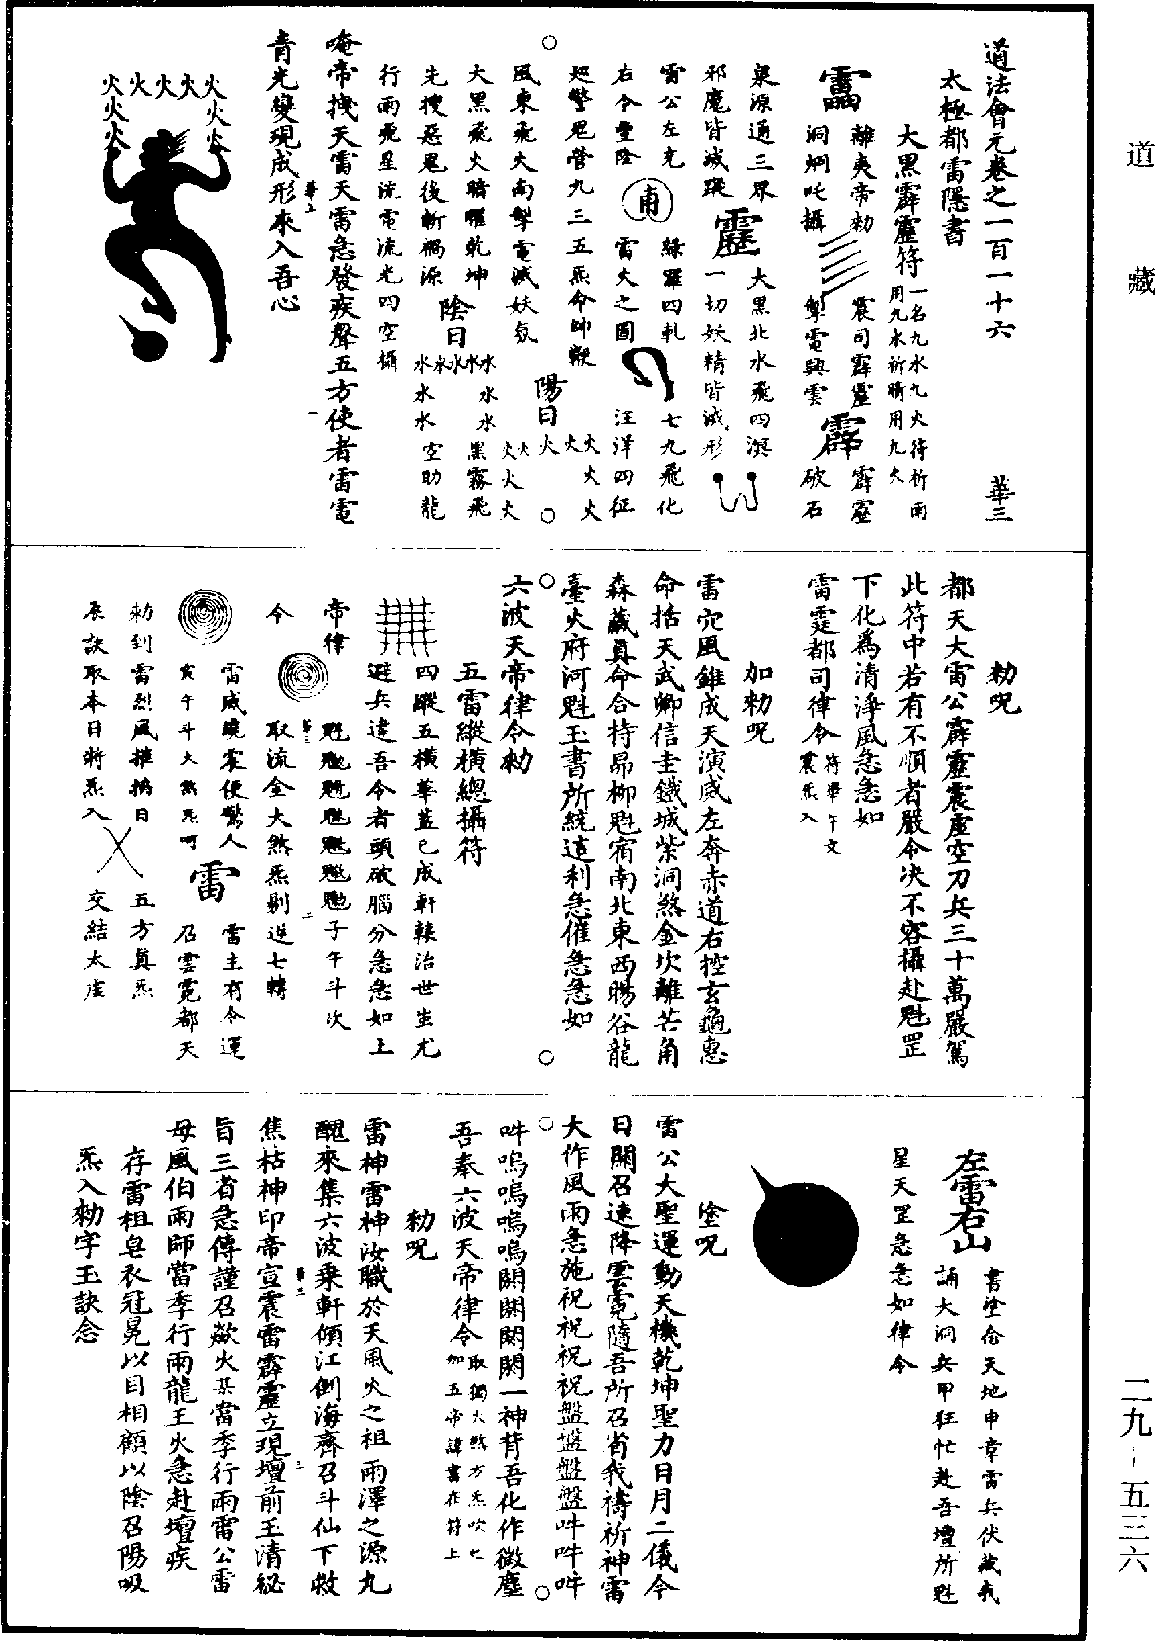 道藏
二九-五三六
道法會元卷之一百一十六 華三
太極都雷隱書
大黑霹靂符 一名九水九火符祈雨用九水祈晴用九火
離夷帝勑 震司霹靂 霹靂
洞炯吒攝 掣電興雲 破石
泉源通三界 大黑北水飛四溟
邪魔皆滅蹤 靂 一切妖精皆滅形
雷公左充 綠羅四軋 七九飛化
右令豐隆 雷火之圖 汪洋四征
風東飛火南掣電滅妖氛 陽日
大黑飛火晴曜乾坤 黑霧飛
先搜惡鬼後斬禍源 陰日 空助龍
行雨飛星流電流光四空攝
唵帝拽天雷天雷急發疾聲五方使者雷電
青光變現成形來入吾心
火火火火火
火火火火
勑呪
都天大雷公霹靂震虛空刀兵三十萬嚴駕
此符中若有不順者嚴令决不容攝赴魁罡
下化為清淨風急急如
雷霆都司律令
加勑呪
雷穴風錐成天演威左奔赤道右控玄龜惠
命括天武卿信圭鐵城紫洞煞金坎離芒角
森藏真命合持昴柳魁宿南北東西暘谷龍
臺火府河魁玉書所統迠利急催急急如
六波天帝律令勑
五雷縱橫總攝符
四縱五橫華蓋已成軒轅治世蚩尤
避兵違吾令者頭破腦分急急如上
帝律 子午斗次
令 取流金火然炁剔逆七轉
雷威曉霍便驚人 雷主有令運
寅午斗大煞炁呵 雷 召雲霓都天
勑到雷烈風摧搗日 五方真炁
辰訣取本日將炁入 交結太虛
左雷右山 書塗念天地申章雷兵伏藏我
誦大洞兵甲狂忙赴吾壇所魁
星天罡急急如律令
塗呪
雷公大聖運動天機乾坤聖力日月二儀今
日關召速降雲霓隨吾所召省我禱祈神雷
大作風雨急施祝祝祝祝盤盤盤盤吽吽吽
吽嗚嗚嗚嗚闕闕闕闕一神背吾化作微塵
吾奉六波天帝律令 取獨火煞方炁吹七加五帝諱書在符上
勑呪
雷神雷神汝職於天風火之祖雨澤之源九
醜來集六波乘軒傾江倒海齊召斗仙下救
焦枯神印帝宣震雷霹靂立現壇前玉清秘
旨三省急傳謹召歘火某當季行雨雷公雷
母風伯雨師當季行雨龍王火急赴壇疾
存雷祖皂衣冠冕以目相顧以陰召陽吸
炁入勑字玉訣念